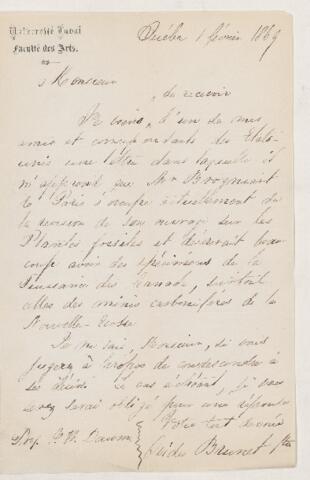 Université Laval
Faculté des Arts.
Québec 1 février 1869
Monsieur
de recevoir
Je viens d'un de mes
amis et correspondants des Etats
unis une lettre dans laquelle il
m'apprend que Mr Brogniart
de Paris s'occupe actuellement de
la révision de son ouvrage sur les
Plantes fossiles et désirerait beau
coup avoir des spécimens de la
Puissance du Canada, surtout
celles des mines carbonifères de la
Nouvelle-Ecosse
Je ne sais, Monsieur, si vous
jugerez à propos de condescendre à
ce désir le cas échéant, je vous
serai obligé pour une réponse
Votre tout dévoué
Prof. J. W. Dawson
Ovide Brunet Ptre